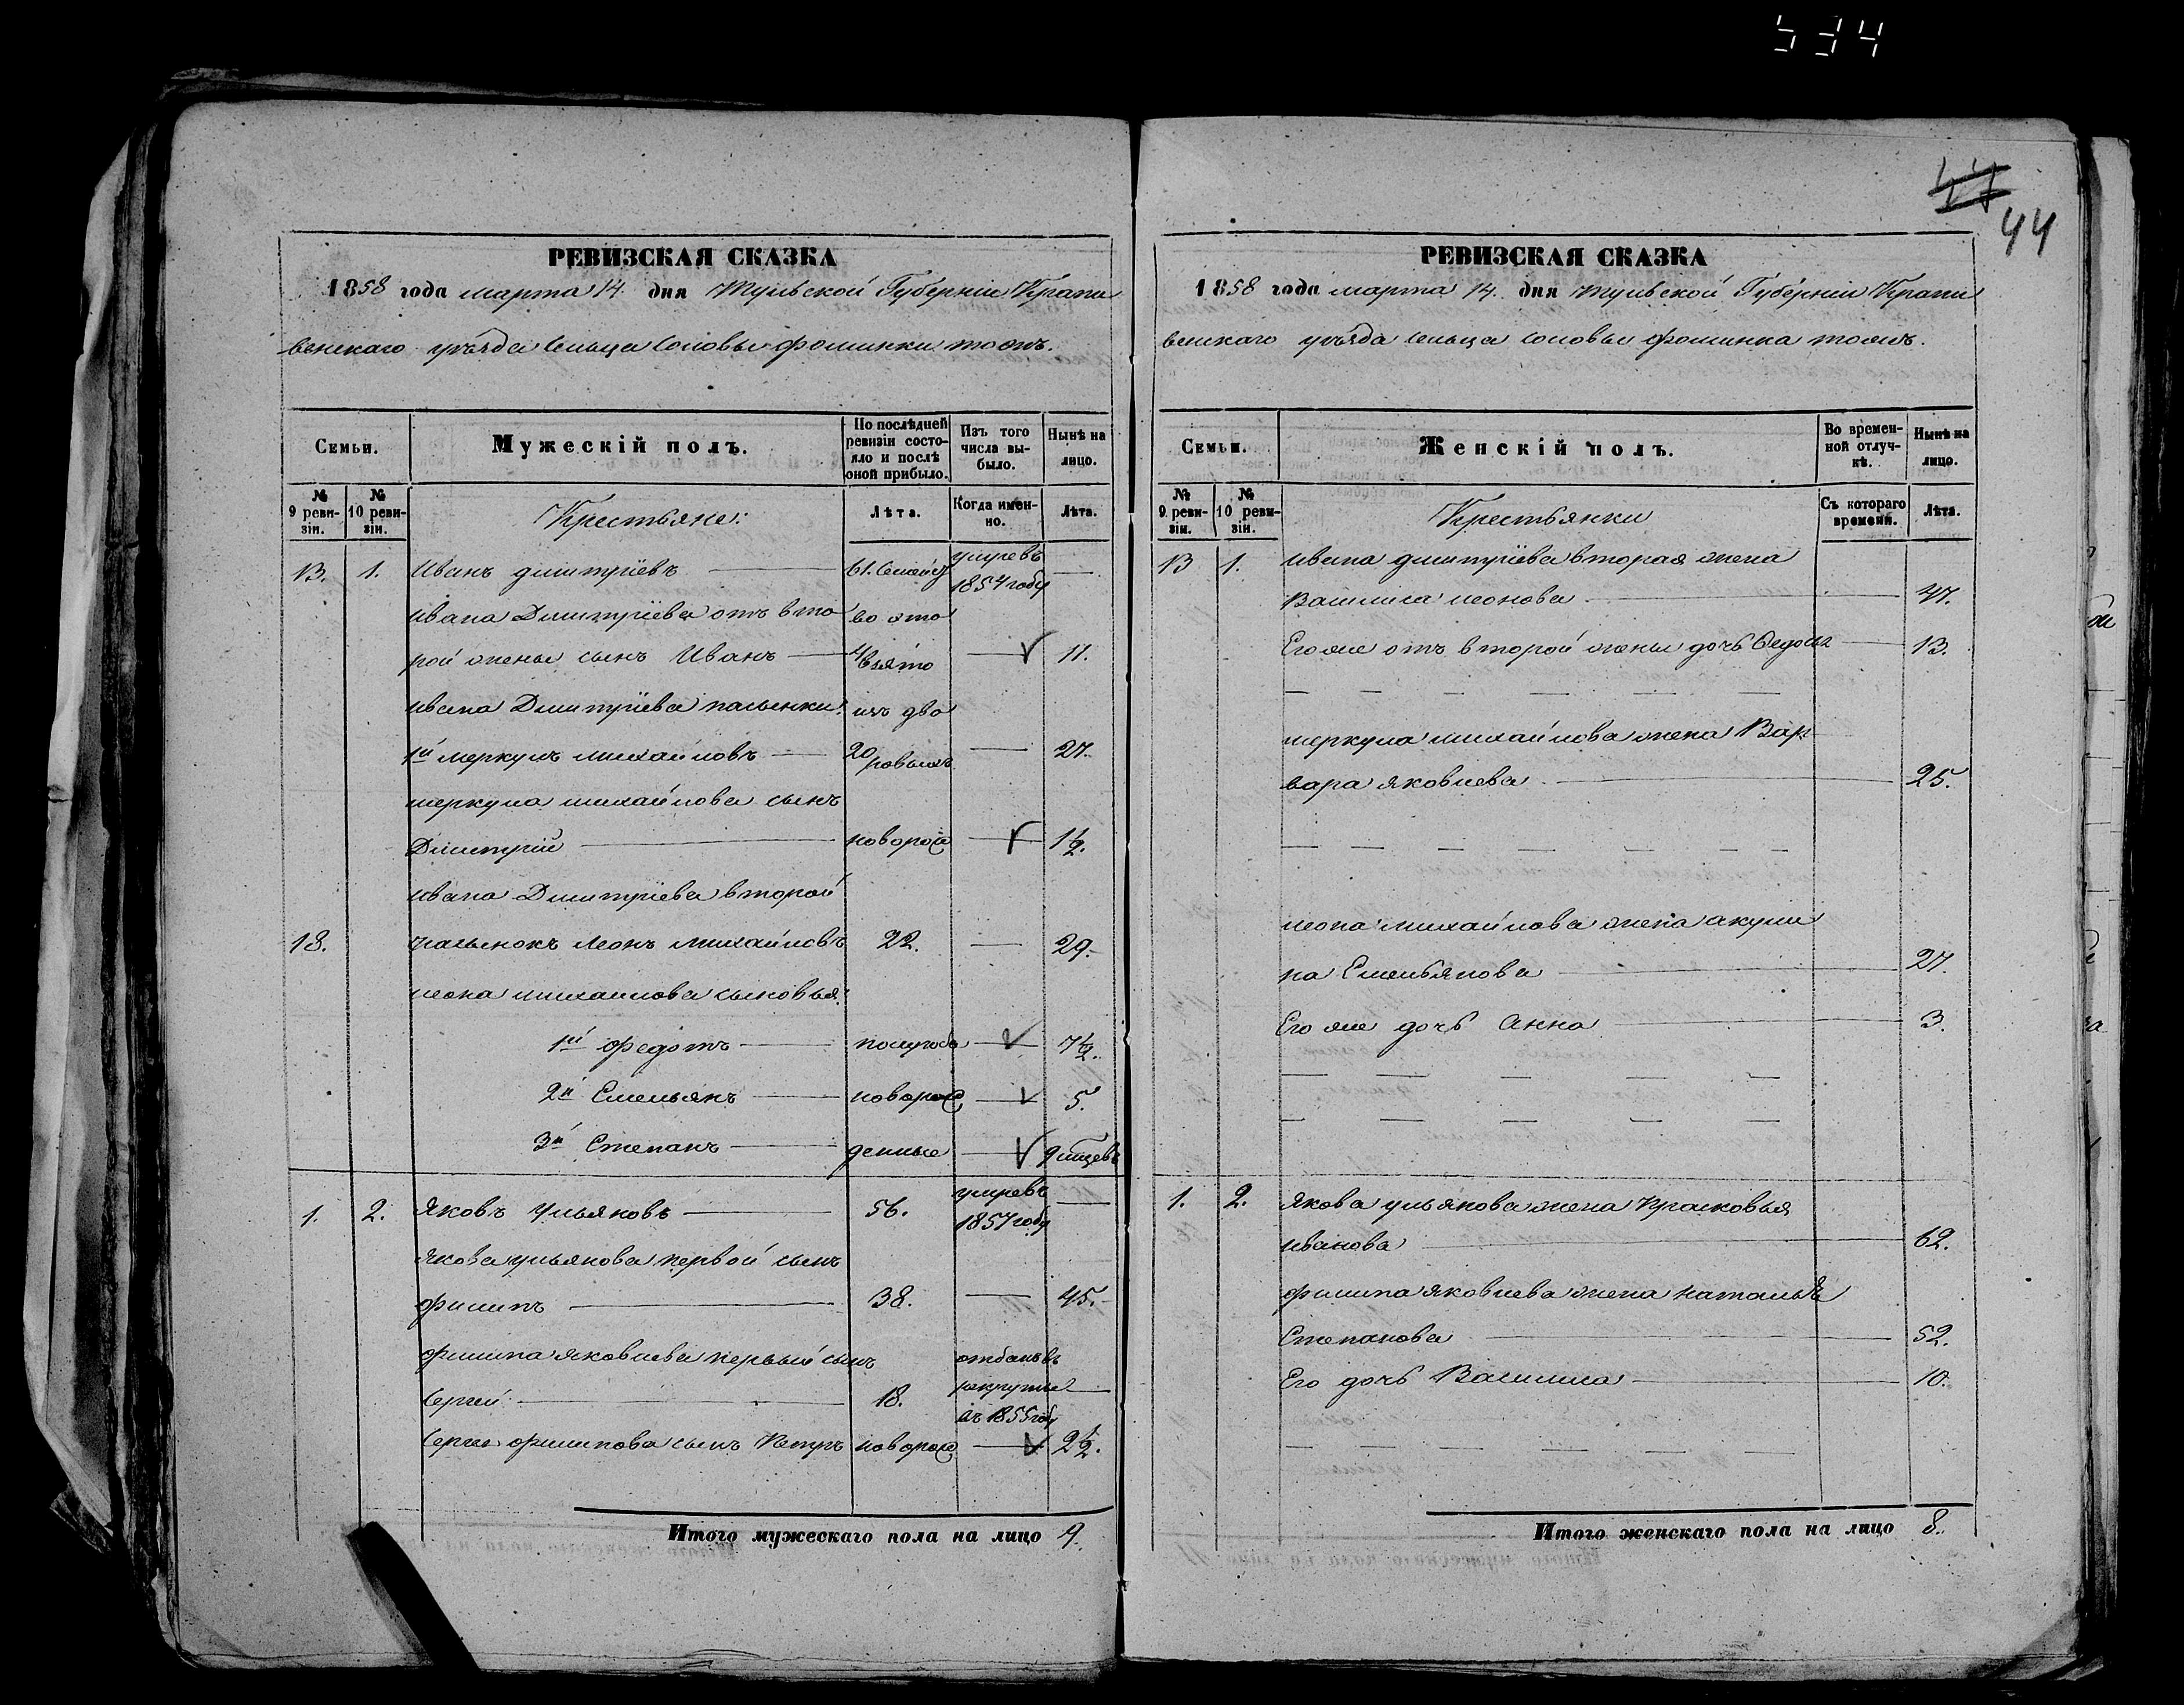 534
44
РЕВИЗСКАЯ СКАЗКА
1858 года марта 14 дня Тульской Губерніи Крапи
венскаго уѣзда сельца Соловьи Фоминки тожъ.
Семьи.
Мужескій полъ.
По послѣдней ревизіи состояло и послѣ оной прибыло.
Изъ того числа выбыло.
Нынѣ на лицо.
№ 9 ревизіи.
№ 10 ревизіи.
Крестьяне:
Лѣта.
Когда именно.
Лѣта.
13. 1. Иванъ дмитріевъ 61. умре въ 1854 году
ивана Дмитріева отъ вто во дво
рой жены сынъ Иванъ 4 взято 11.
ивана Дмитріева пасынки: изъ дво
1й меркулъ михайловъ 20 ровыхъ 27.
меркула михайлова сынъ
Дмитрій новорож 1½.
ивана Дмитріева второй
18. пасынокъ леонъ михайловъ 22. 29.
леона михаилова сыновья:
1й федотъ полугода 7½.
2й Емельянъ новорож 5.
3й Степанъ денные 9 мцевъ
1. 2. Яковъ Ульяновъ 56. умре въ 1857 году
якова ульянова первой сынъ
филипъ 38. 45.
филипа яковлева первый сынъ отданъ въ
Сергей 18. рекруты въ 1855 году
Сергея филипова сынъ Петръ новорож 2½.
Итого мужескаго пола на лицо 9.
РЕВИЗСКАЯ СКАЗКА
1858 года марта 14. дня Тульской Губерніи Крапи
венскаго уѣзда сельца соловьи фоминка тожъ.
Семьи.
Женскій полъ.
Во временной отлучкѣ.
Нынѣ на лицо.
№ 9 ревизіи.
№ 10 ревизіи.
Крестьянки
Съ котораго времени.
Лѣта.
13 1. ивана дмитріева вторая жена
Василиса леонова 47.
Его же отъ второй жены дочь Федосья 13.
меркула михайлова жена Вар
вара яковлева 25.
леона михайлова жена акули
на Емельянова 27.
Его же дочь Анна 3.
1. 2. якова ульянова жена Прасковья
иванова 62.
филипа яковлева жена наталья
Степанова 52.
Его дочь Василиса 10.
Итого женскаго пола на лицо 8.